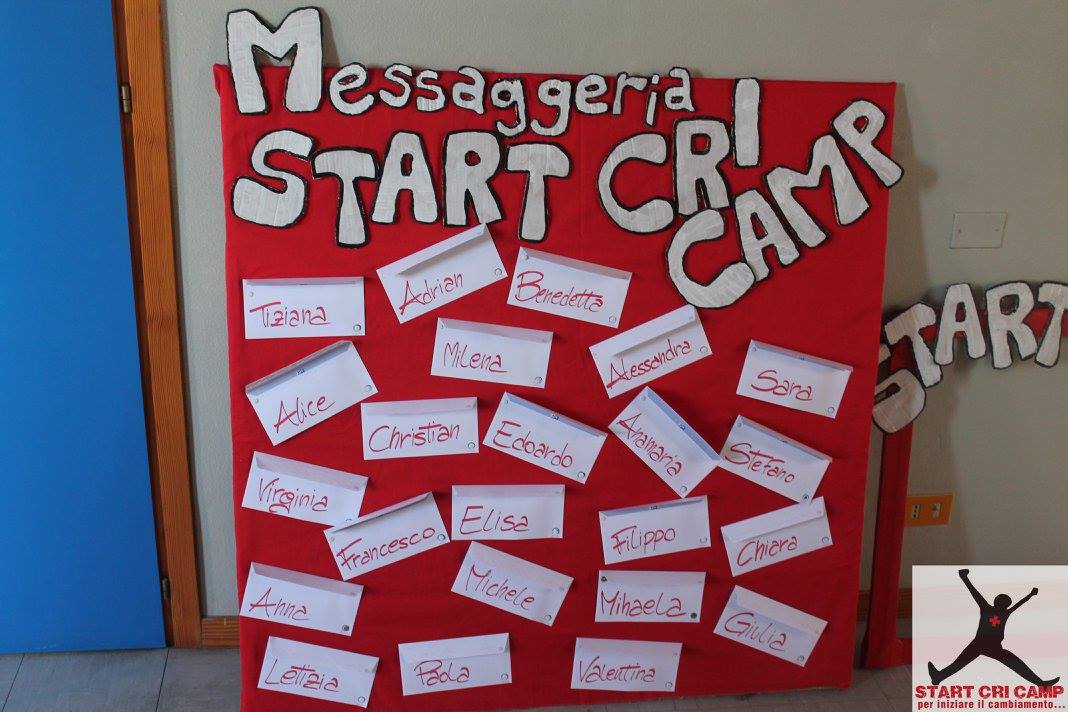 Messaggeria
START CRI
CAMP
START
Tiziana
Adrian
Benedetta
Milena
Alessandra
Sara
Alice
Christian
Edoardo
Anamaria
Stefano
Virginia
Francesco
Elisa
Filippo
Chiara
Anna
Michele
Mihaela
Giulia
Letizia
Paola
Valentina
START CRI CAMP
per iniziare il cambiamento...